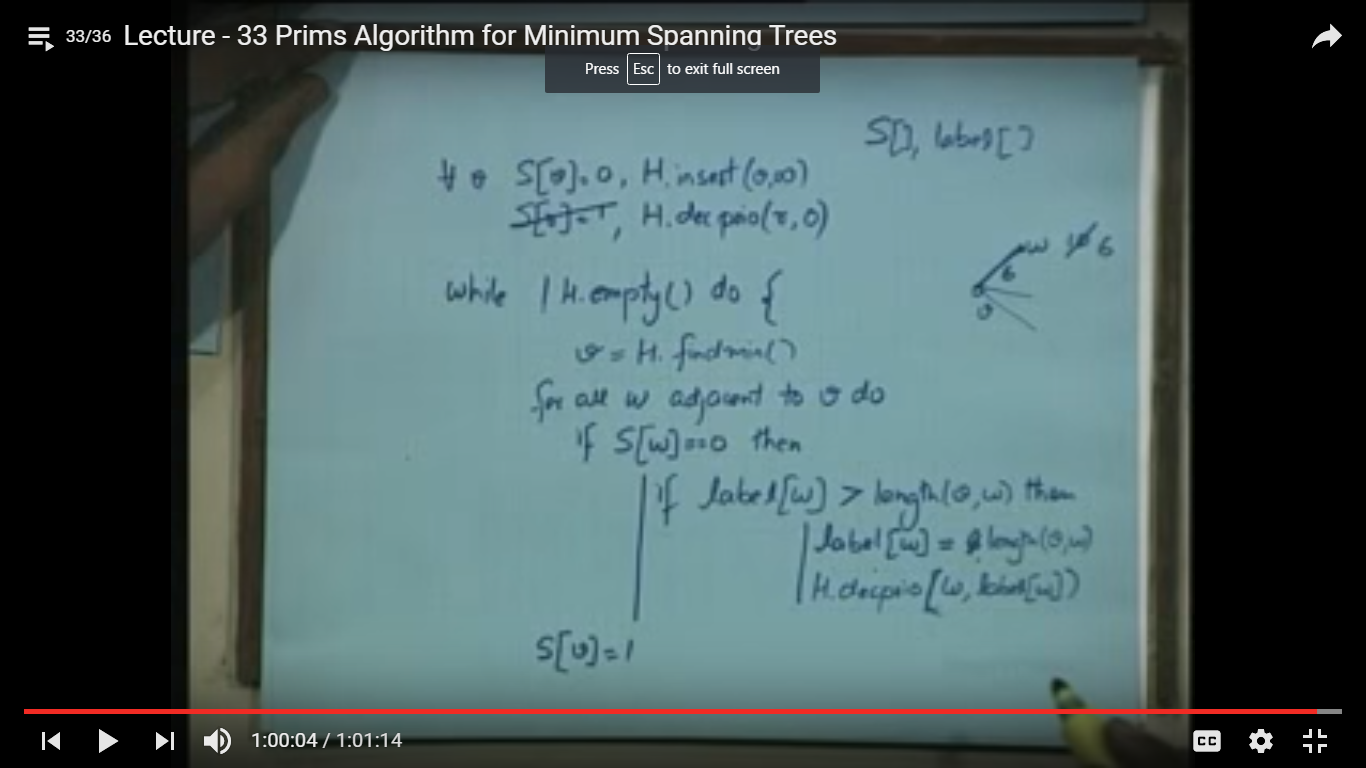 33/36 Lecture - 33 Prims Algorithm for Minimum Spanning Trees
Press Esc to exit full screen
S[], label[]
∀ v S[v]=0, H.insert(v,∞)
S[r]=1, H.decprio(r,0)
w 10 6
6
v
while !H.empty() do {
v = H.findmin()
for all w adjacent to v do
if S[w]==0 then
if label[w] > length(v,w) then
label[w] = length(v,w)
H.decprio[w, label[w])
S[v]=1
1:00:04 / 1:01:14
CC